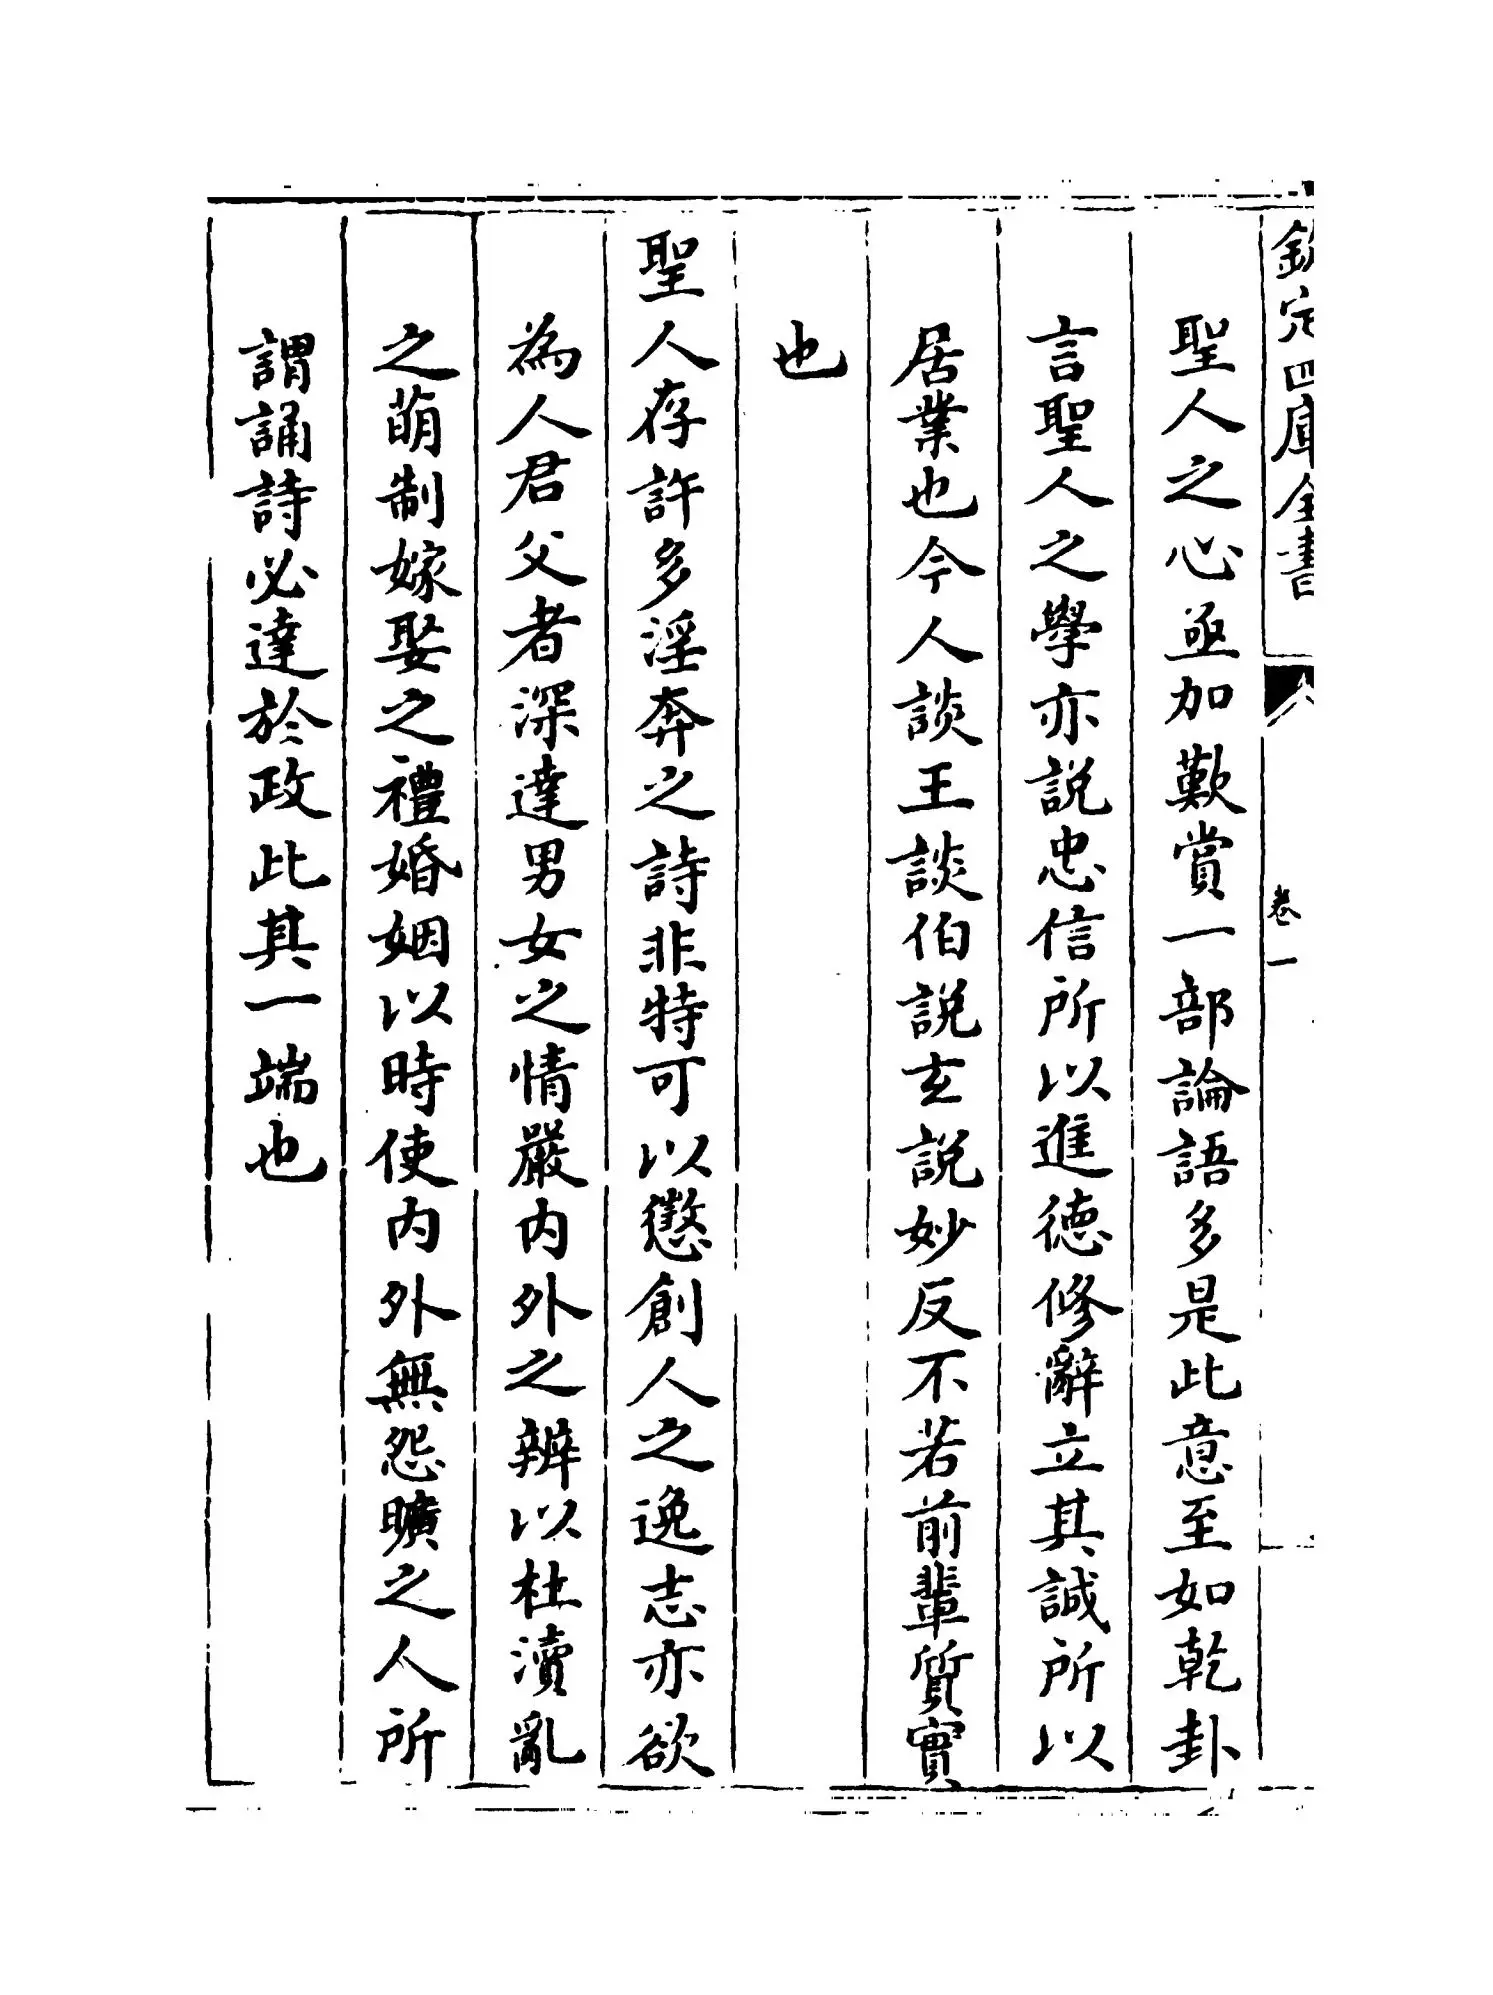 欽定四庫全書
卷一
聖人之心亟加歎賞一部論語多是此意至如乾卦
言聖人之學亦説忠信所以進德修辭立其誠所以
居業也今人談王談伯説玄説妙反不若前輩質實
也
聖人存許多淫奔之詩非特可以懲創人之逸志亦欲
為人君父者深達男女之情嚴内外之辨以杜瀆亂
之萌制嫁娶之禮婚姻以時使内外無怨曠之人所
謂誦詩必達於政此其一端也